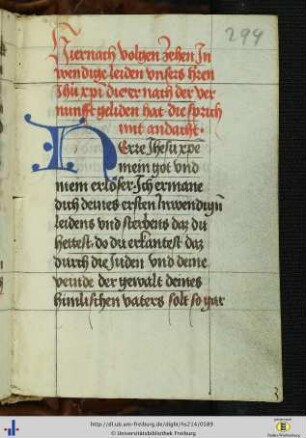 299
Hiernach volgen zehen In
wendige leiden vnsers hren
Jhu xpi die er nach der ver
nunfft geliden hat die sprich
mit andacht.
HErre Jhesu xpe
mein got vnd
mein erlöser Ich ermane
dich deines ersten Inwendign
leidens vnd sterbens daz du
hettest do du erkantest daz
durch die Juden vnd deine
veinde der gewalt deines
himlischen vaters solt so gar
http://dl.ub.uni-freiburg.de/diglit/hs214/0589
© Universitätsbibliothek Freiburg